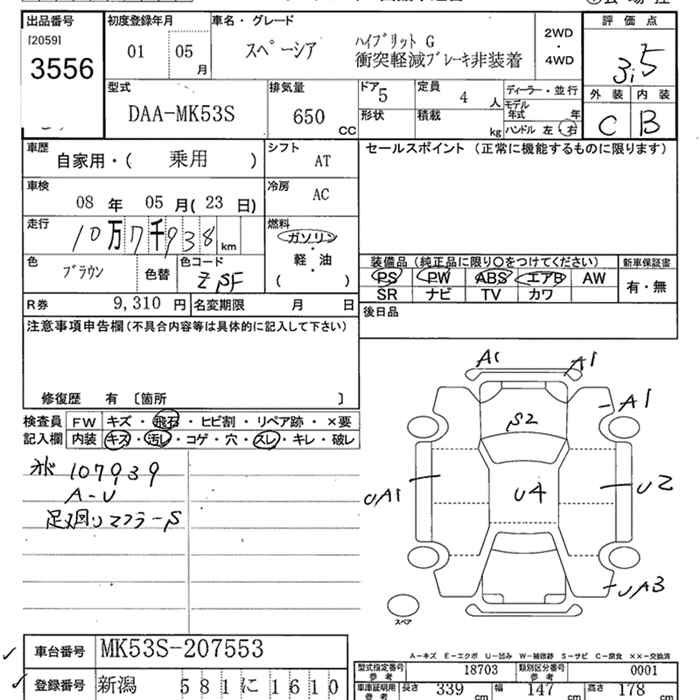 出品番号 初度登録年月 車名・グレード 評価点
[2059]
3556
01 05月
スペーシア
ハイブリット G
衝突軽減ブレーキ非装着
2WD
・
4WD
3.5
外装 内装
C B
型式 排気量 ドア 5 定員 4人 ディーラー・並行
DAA-MK53S 650 CC
形状 積載 kg モデル年式 年
ハンドル 左 右
車歴 自家用・( 乗用 ) シフト AT セールスポイント(正常に機能するものに限ります)
車検 08年 05月(23日) 冷房 AC
走行 10万7千938km 燃料 ガソリン
軽・油
( )
色 ブラウン 色替 色コード
R券 9,310円 名変期限 月 日
装備品(純正品に限り○をつけてください) 新車保証書
PS PW ABS エアB AW 有・無
SR ナビ TV カワ
後日品
注意事項申告欄(不具合内容等は具体的に記入して下さい)
修復歴 有 〔箇所 〕
検査員 FW キズ・飛石・ヒビ割・リペア跡・×要
記入欄 内装 キズ・汚レ・コゲ・穴・スレ・キレ・破レ
107939
A-U
足廻りマフラーS
A1 A1
A1
S2
UA1 U4 U2
UA3
スペア
車台番号 MK53S-207553
登録番号 新潟 581 に 1610
A-キズ E-エクボ U-凹み W-補修跡 S-サビ C-腐食 ××-交換済
型式指定番号 参考 18703 類別区分番号 参考 0001
車庫証明用 参考 長さ 339cm 幅 147cm 高さ 178cm